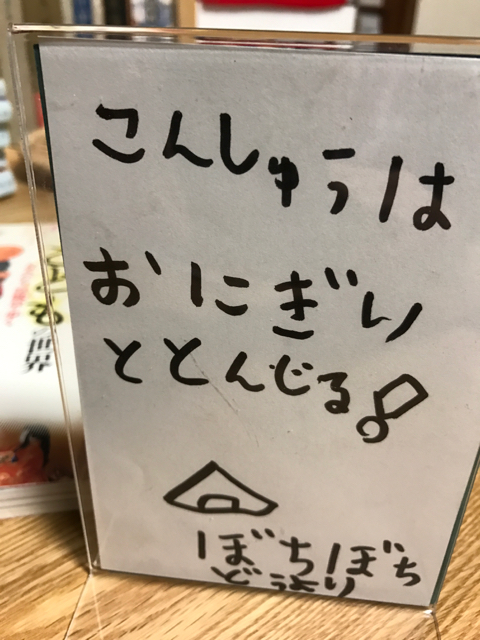 こんしゅうは
おにぎり
ととんじる!
ぼちぼち